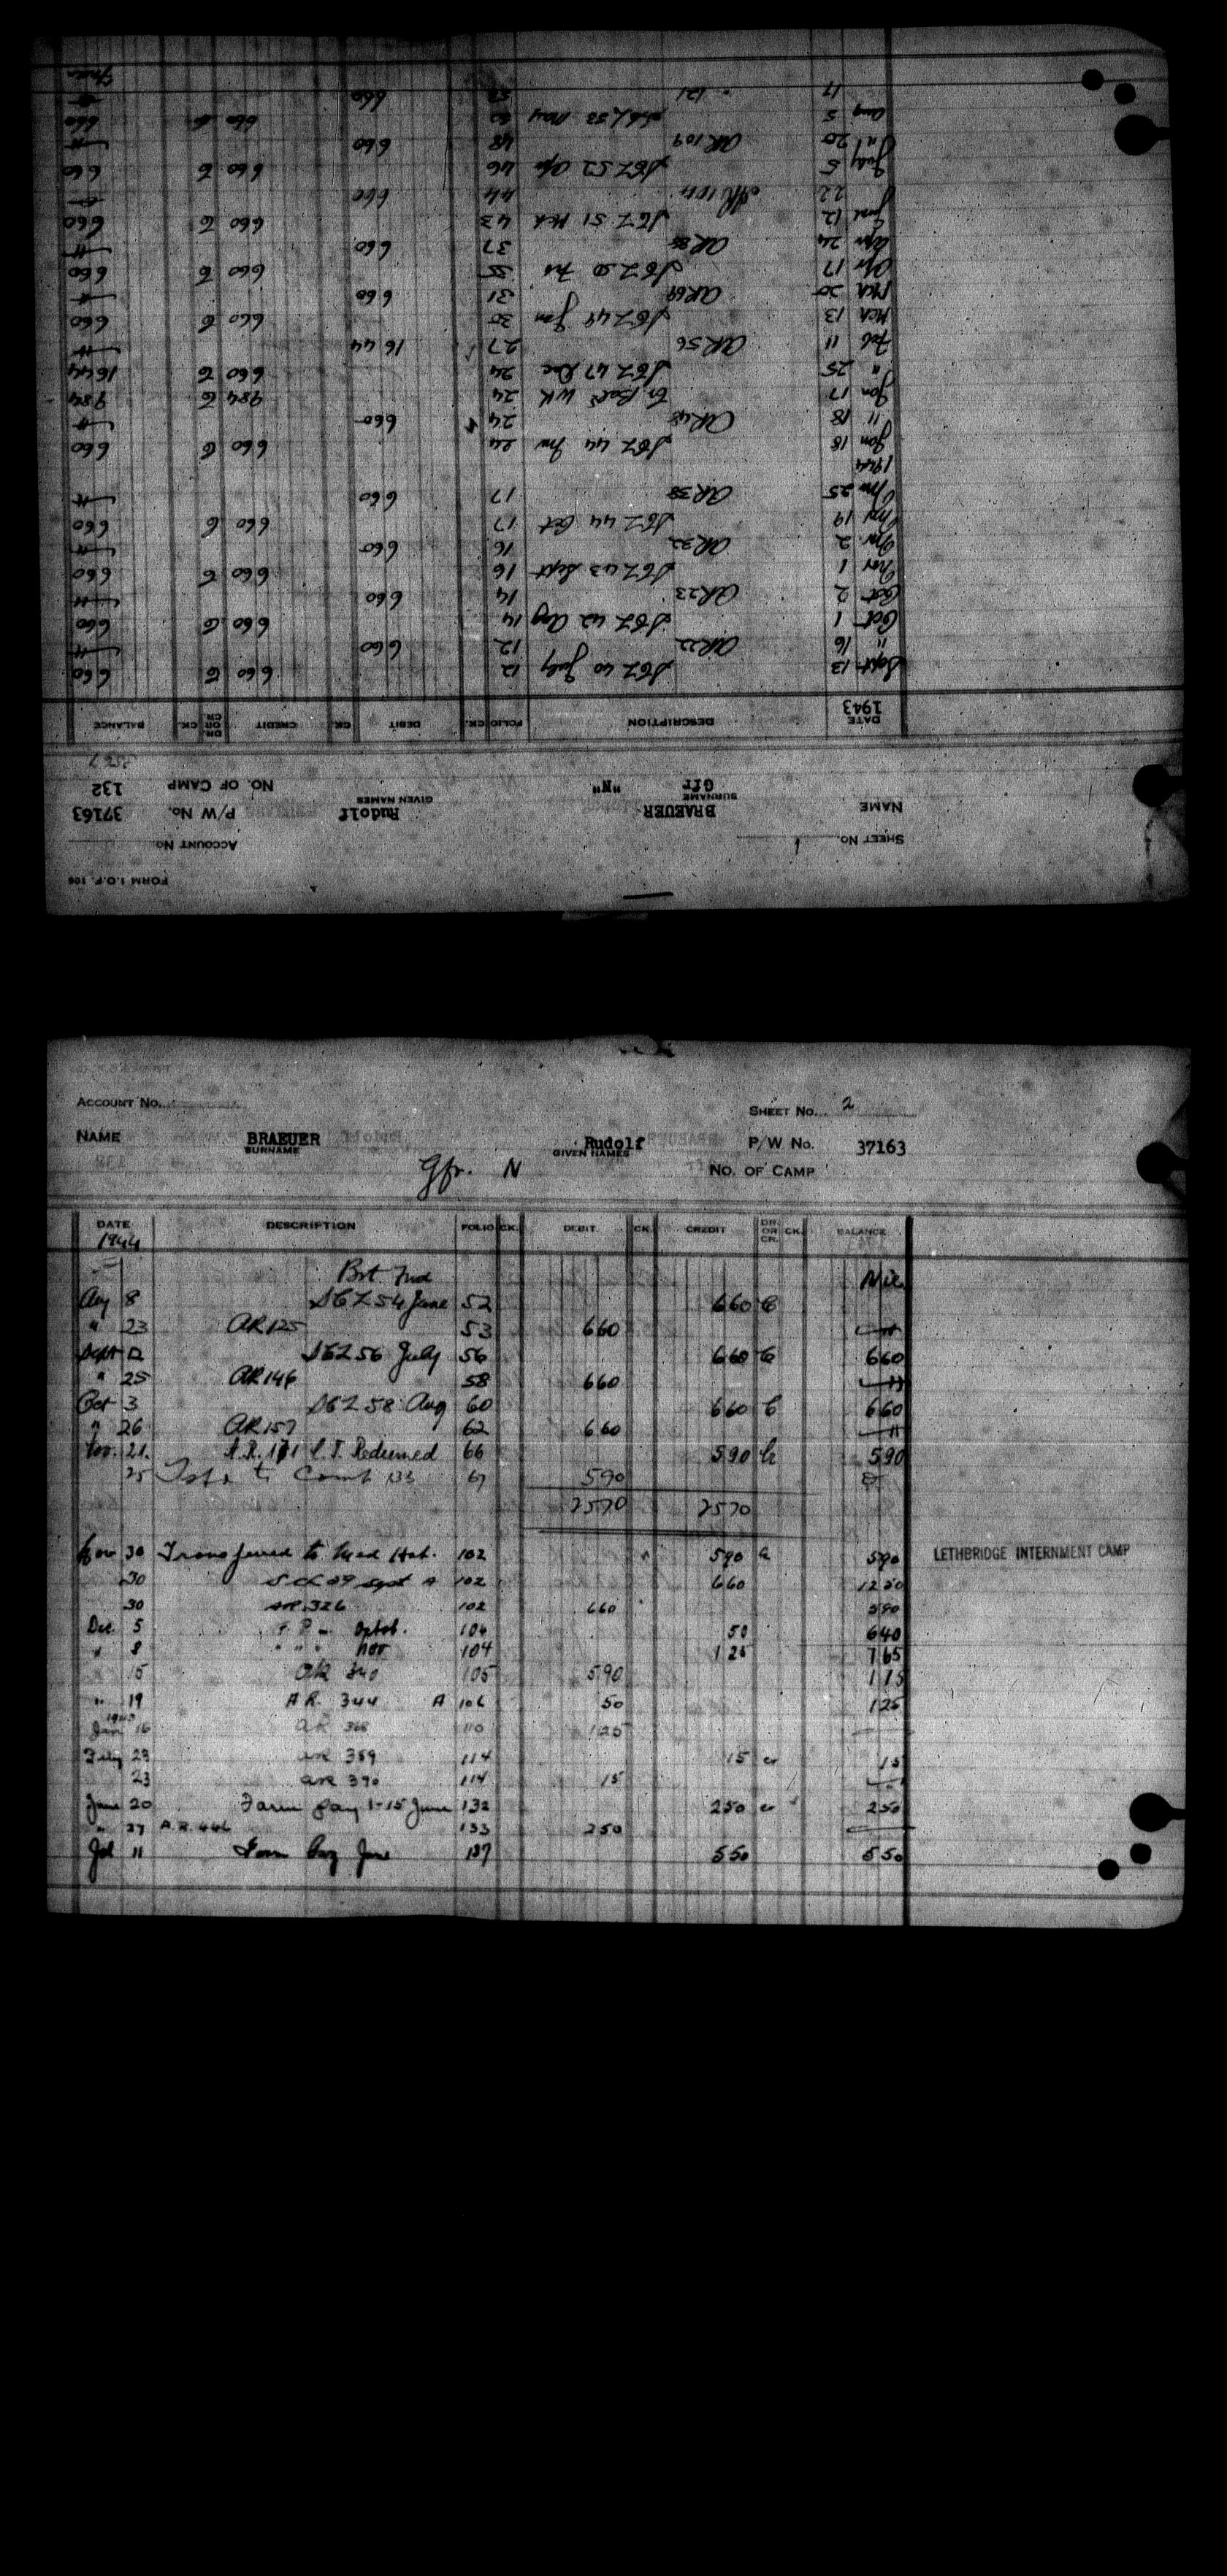 FORM I.O.P. 106
SHEET No. 1 ACCOUNT No.
NAME BRAEUER Rudolf P/W No. 37163
SURNAME GIVEN NAMES
Gfr "N" NO. OF CAMP 132
DATE DESCRIPTION FOLIO CK. DEBIT CK. CREDIT DR. OR CR. CK. BALANCE
1943
Sept 13 40 July 12 660 660
" 16 AR22 12 660
Oct 1 42 Aug 14 660 660
Oct 2 AR23 14 660
Nov 1 43 Sept 16 660 660
Nov 2 AR32 16 660
Nov 19 44 Oct 17 660 660
Nov 25 AR38 17 660
1944
Jan 18 44 Nov 24 660 660
" 18 AR48 24 660
Jan 17 24 984 984
" 25 47 Dec 24 660 1644
Feb 11 AR56 27 1644
Mch 13 49 Jan 30 660 660
Mch 20 AR69 31 660
Apr 17 50 35 660 660
Apr 24 AR 37 660
June 12 51 Mch 43 660 660
22 AR 104 44 660
July 5 52 Apr 46 660 660
" 20 AR109 48 660
Aug 5 53 May 660 660
17 " 121 660
ACCOUNT No. SHEET No. 2
NAME BRAEUER Rudolf P/W No. 37163
SURNAME GIVEN NAMES
Gfr. N NO. OF CAMP
DATE DESCRIPTION FOLIO CK. DEBIT CK. CREDIT DR. OR CR. CK. BALANCE
1944
Brt Fwd Nil
Aug 8 54 June 52 660
" 23 AR125 53 660
Sept 12 56 July 56 660 660
" 25 AR146 58 660
Oct 3 58 Aug 60 660 660
" 26 AR157 62 660
Nov. 21 A.R. 171 Redeemed 66 590 590
25 to Camp 133 67 590
2570 2570
Nov 30 Transferred to Med Hat. 102 590 590
LETHBRIDGE INTERNMENT CAMP
30 29 Sept A 102 660 1250
30 AR 326 102 660 590
Dec. 5 Octob. 104 50 640
" 8 " " " Nov 104 125 765
15 AR 340 105 590 175
" 19 A.R. 344 A 106 50 125
1945
Jan 16 AR 368 110 125
Feby 23 AR 389 114 15 cr 15
23 AR 390 114 15
June 20 Farm Pay 1-15 June 132 250 cr 250
" 27 A.R. 446 133 250
Jul 11 Farm Pay June 137 550 550